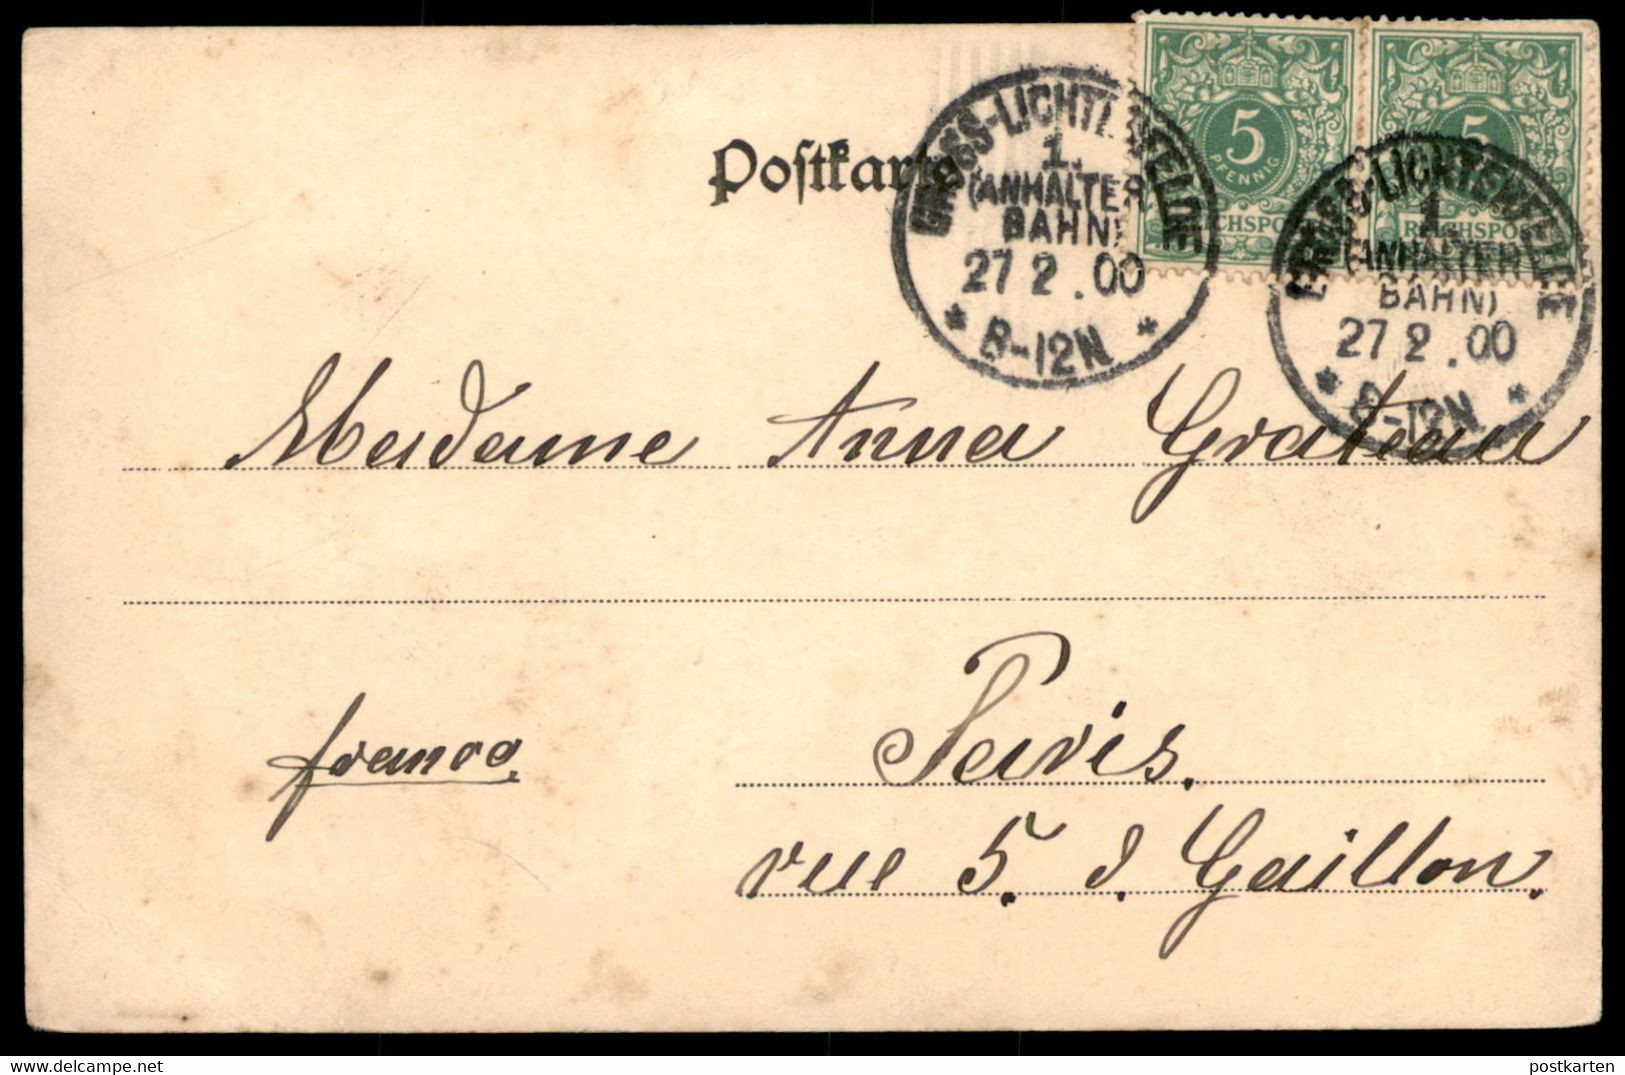 Postkarte
GROSS-LICHTERFELDE
1.
(ANHALTER
BAHN)
27 2. 00
* 8-12N *
5
PFENNIG
REICHSPOST
5
REICHSPOST
GROSS-LICHTERFELDE
1.
(ANHALTER
BAHN)
27 2. 00
* 8-12N *
Madame Anna Grateau
franco.
Paris.
rue 5. d. Gaillon.
postkarten